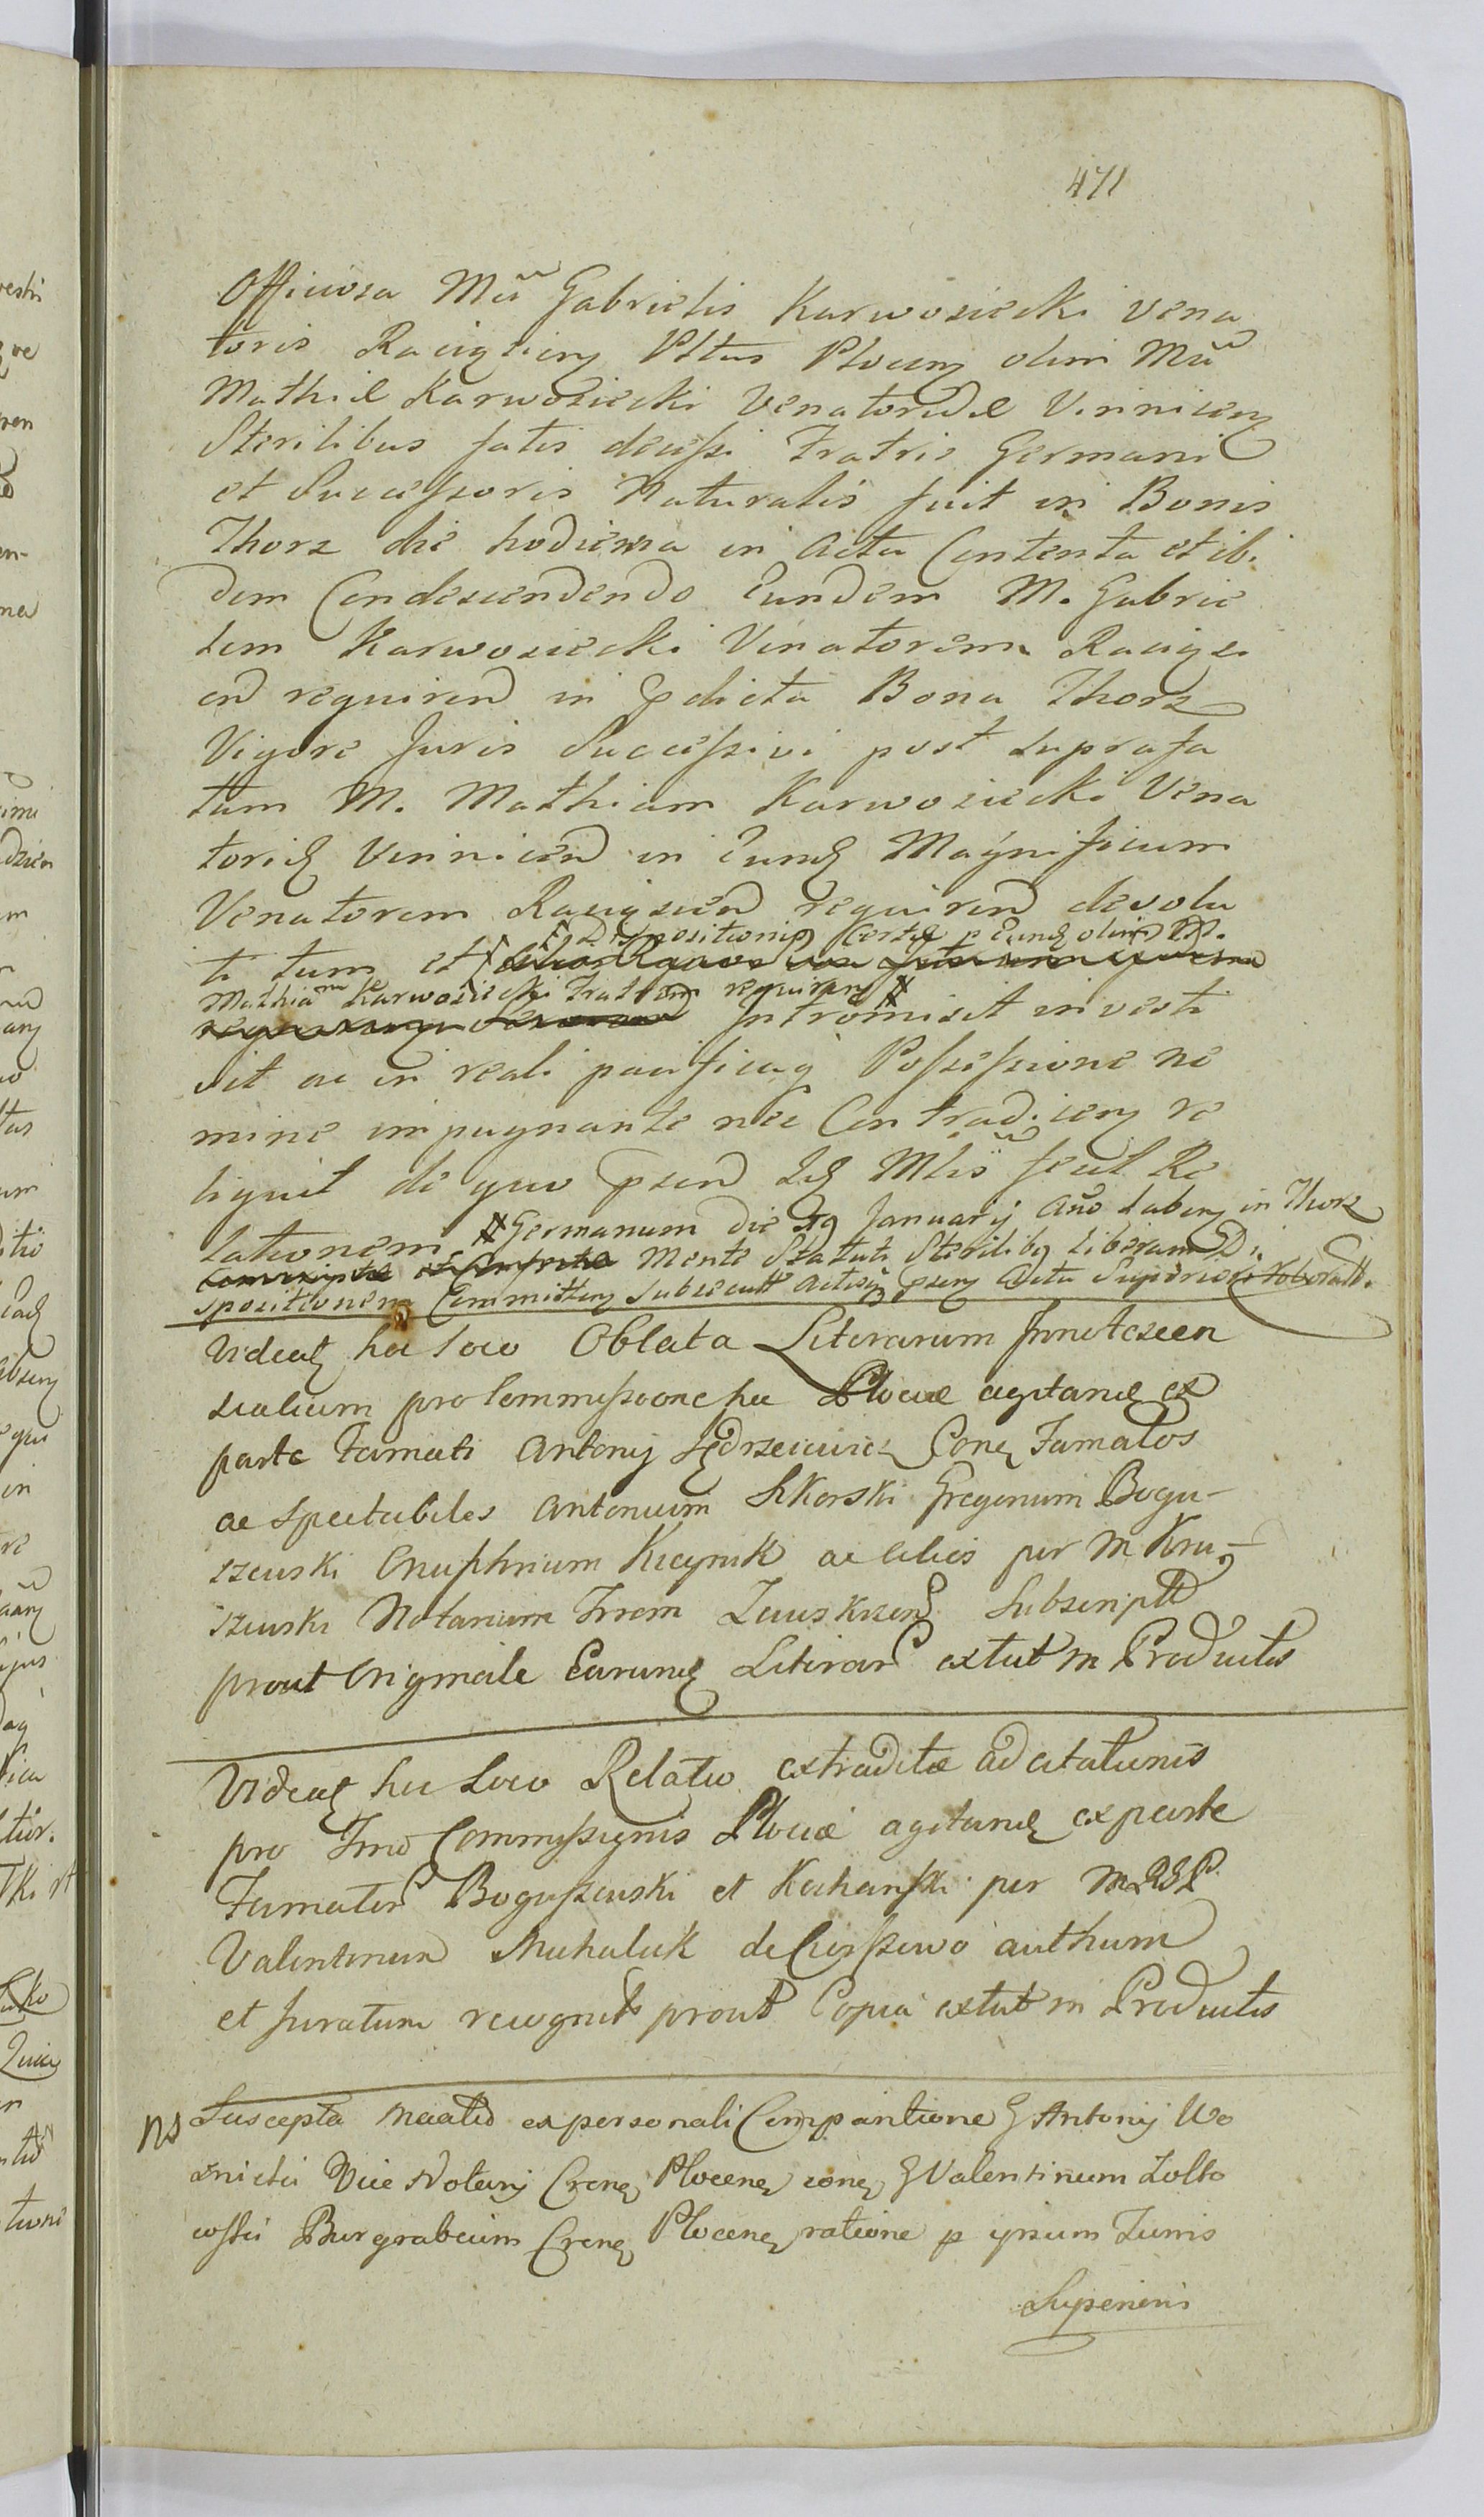 471
Officiosa Mci Gabrielis Karwosiecki Vena
toris Raciązien Pttus Plocen olim Mci
Mathiæ Karwosiecki Venatoridæ Vinnicen
Sterilibus fatis decessi Fratris Germani
et Successoris Naturalis fuit in Bonis
Thorz die hodierna in actu Contenta et ibi
dem Condescendendo Eundem M. Gabrie
lem Karwosiecki Venatorem Raciązi
en requiren in pdicta Bona Thorz
Vigore Juris Successivi post suprafa
tum M. Mathiam Karwosiecki Vena
torid Vinnicen in Eund Magnificum
Venatorem Raciązien requiren devolu
Dispositionis Certæ p Eund olim M.
ti tum et
Mathiam Karwosiecki Fratrem requiren #
Intromisit investi
vit ac in reali pacificaq Possessione ne
mine impugnante nec Contradicen re
liquit de quo psen Idq Mtis fecit Re
lationem # Germanum die 19 Januarij Ano laben in Thorz
mente Statuti Sterilibq liberam Di
spositionem Committen Subsecutt actisq psen Acta Superior roboratt.
Videatq hoc loco Oblata Literarum Innotescen
tialium pro Commissione hic Plociæ agitand ex
parte Famati Antonij Jędrzeiewicz Cone Famatos
ac Spectabiles Antonium Sikorski Gregorium Bogu-
szewski Onuphrium Kicynik ac alios per M Kru-
szewski Notarium Trrem Zawskrzen Subscriptt
prout Originale Earund Literar extat in Productis
Videatq hic loco Relatio extraditæ adcitationis
pro Trno Commissionis Plociæ agitand ex parte
Famator Boguszewski et Kochanski per MRSP
Valentinum Michaluk de Ciosszewo authum
et Juratum recognit prout Copia extat in Productis
NS Suscepta Mcatio ex personali Comparitione G Antonij Wo
znicki Vice Notarij Crene Plocene cone G Valentinum Zolto
wski Burgrabium Crene Plocene ratione p ipsum Iuris
Superioris